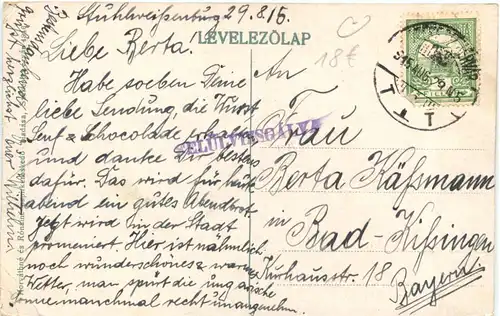 Stuhlweißenburg 29.8.15.
LEVELEZŐLAP
18€
Liebe Berta!
Habe soeben Deine
liebe Sendung, die Wurst
Senf & Schocolade erhalten
und danke Dir bestens
dafür. Das wird für heute
abend ein gutes Abendbrot.
Jetzt wird in der Stadt
promeniert. Hier ist nämlich
noch wunderschönes & warmes
Wetter, man spürt die ungarische
Sonne manchmal recht unangenehm.
FELÜLVIZSGÁLVA
An
Frau
Berta Käßmann
in Bad-Kissingen
Kurhausstr. 18
Bayern.
grüßt herzlichst Euer Wilhelm